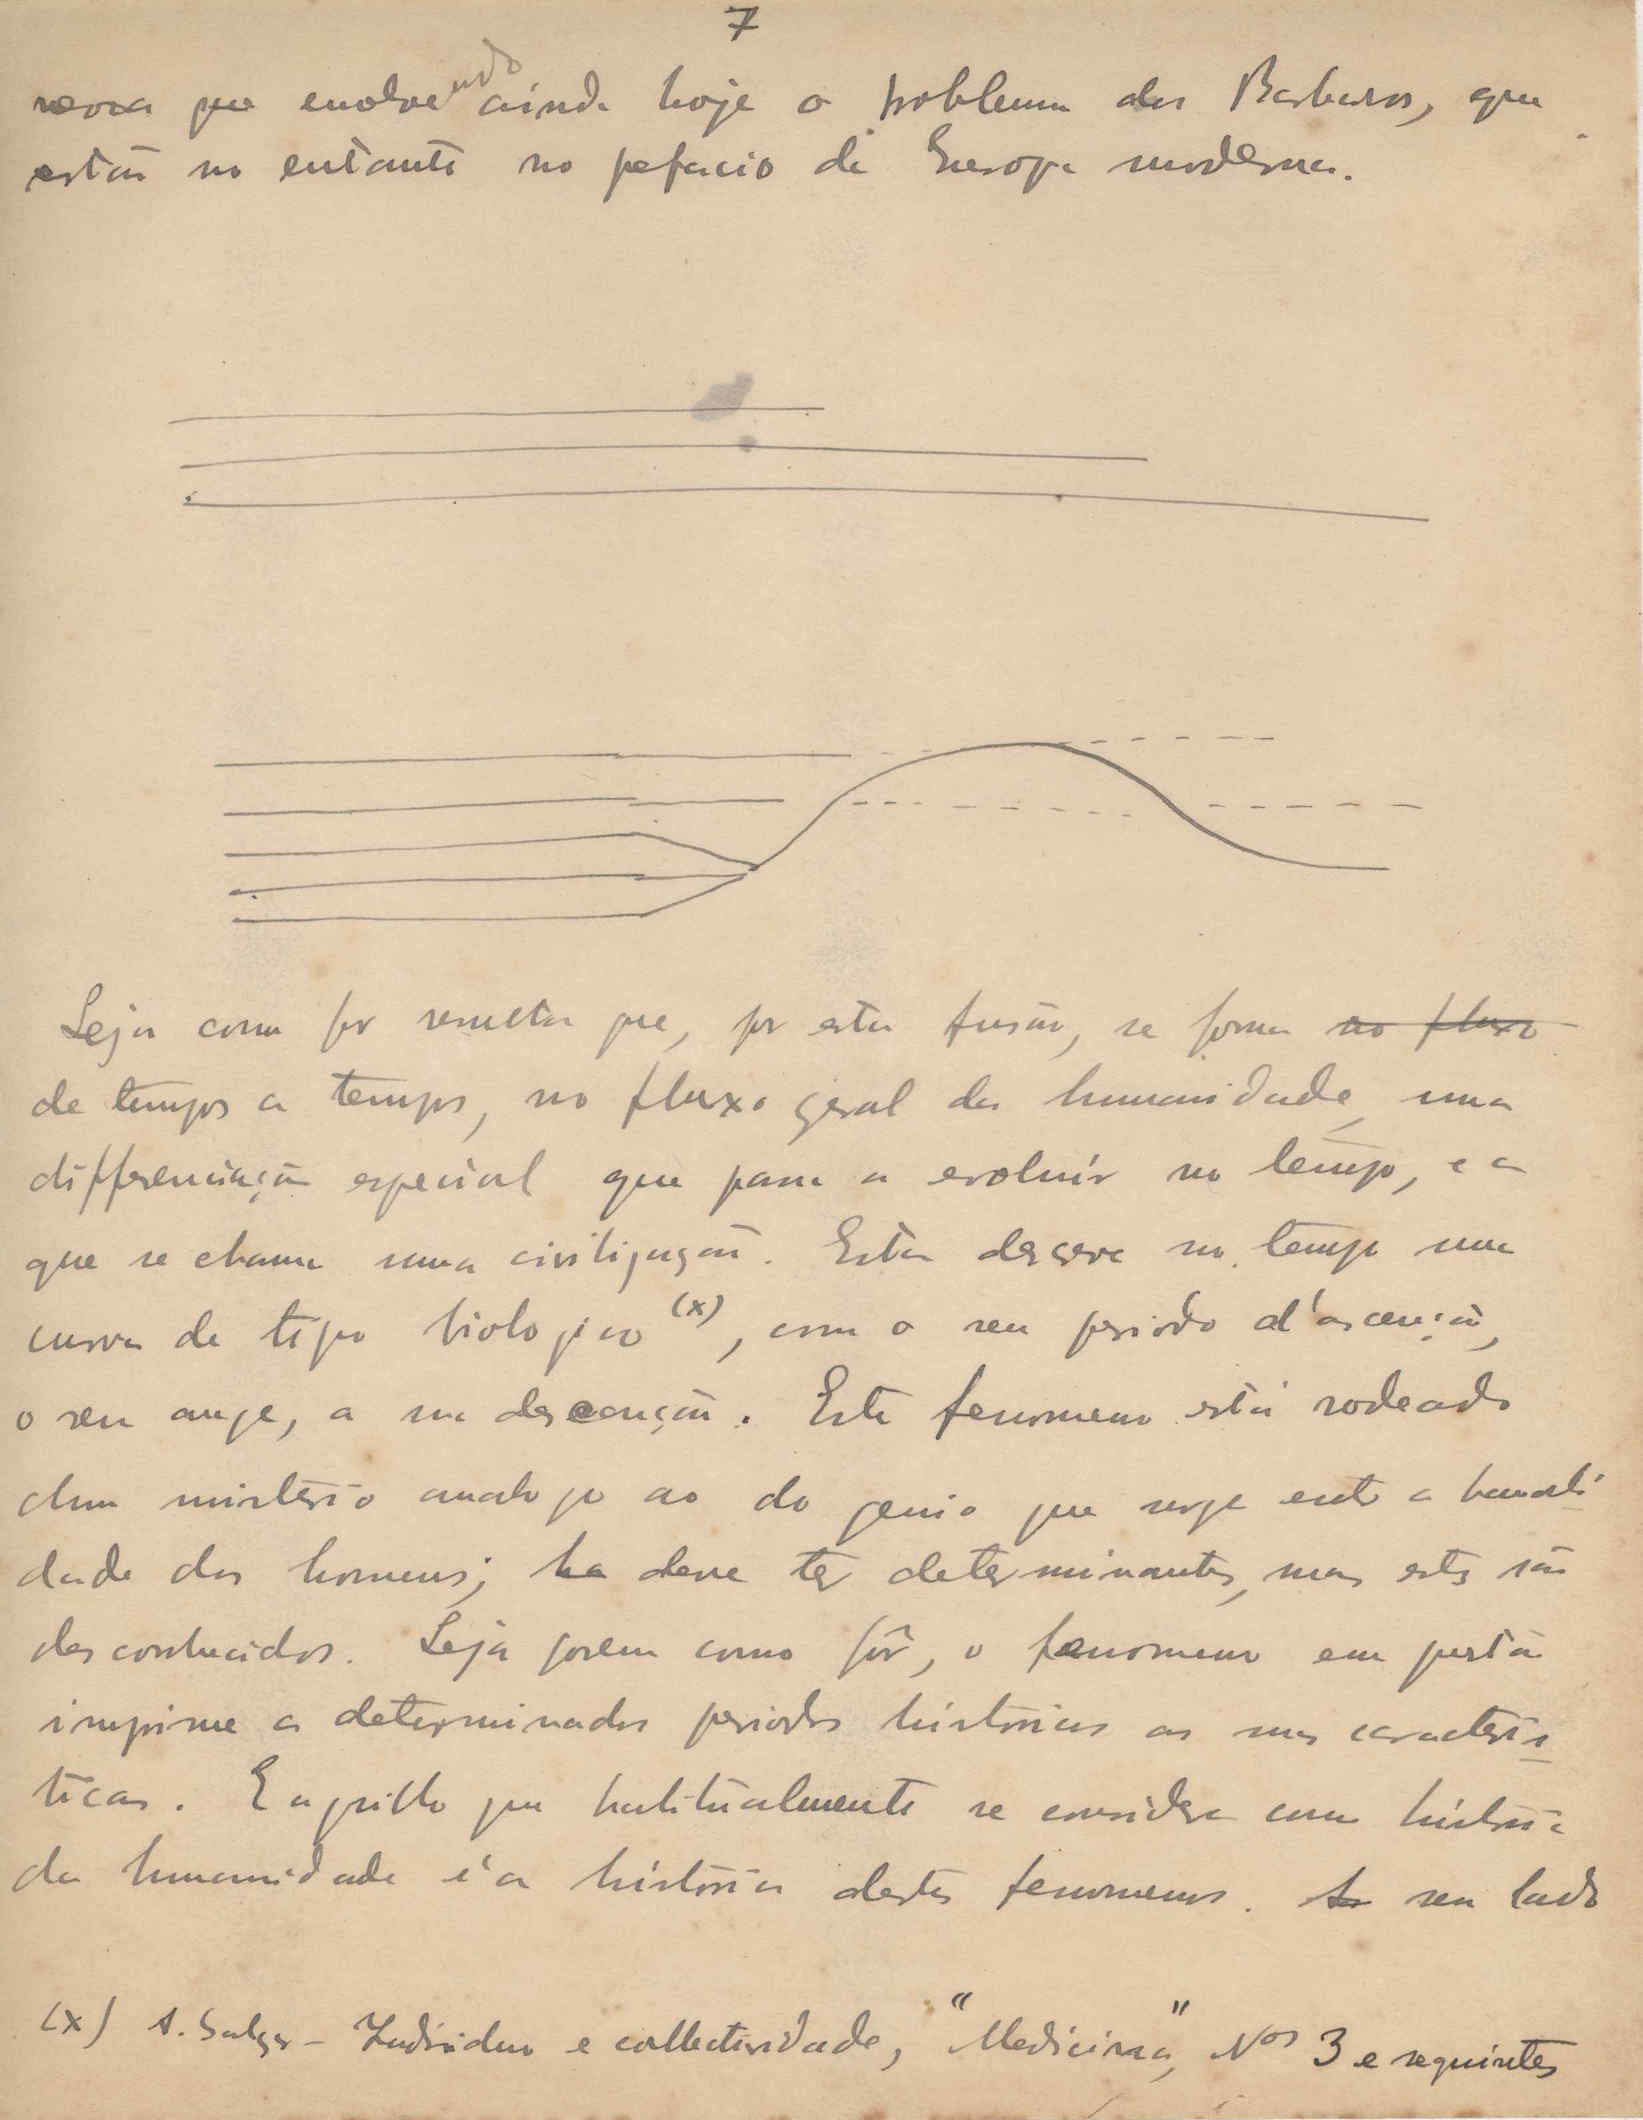 7
nevoa que envolve endo ainda hoje o problema dos Barbaros, que
estão no entanto no prefacio da Europa moderna.
Seja como for resulta que, por esta fusão, se forma no fluxo
de tempos a tempos, no fluxo geral da humanidade, uma
differenciação especial que passa a evoluir no tempo, e a
que se chama uma civilização. Esta descreve no tempo uma
curva de tipo biologico (x), com o seu periodo d'ascenção,
o seu auge, a sua descenção. Este fenomeno está rodeado
dum misterio analogo ao do genio que surge entre a banali
dade dos homens; ha deve ter determinantes, mas estes são
desconhecidos. Seja porem como fôr, o fenomeno em questão
imprime a determinados periodos historicos as suas caracteris
ticas. E aquillo que habitualmente se considera como historia
da humanidade é a historia destes fenomenos. Ao seu lado
(x) A. Salazar – Individuo e collectividade, "Medicina", Nos 3 e seguintes